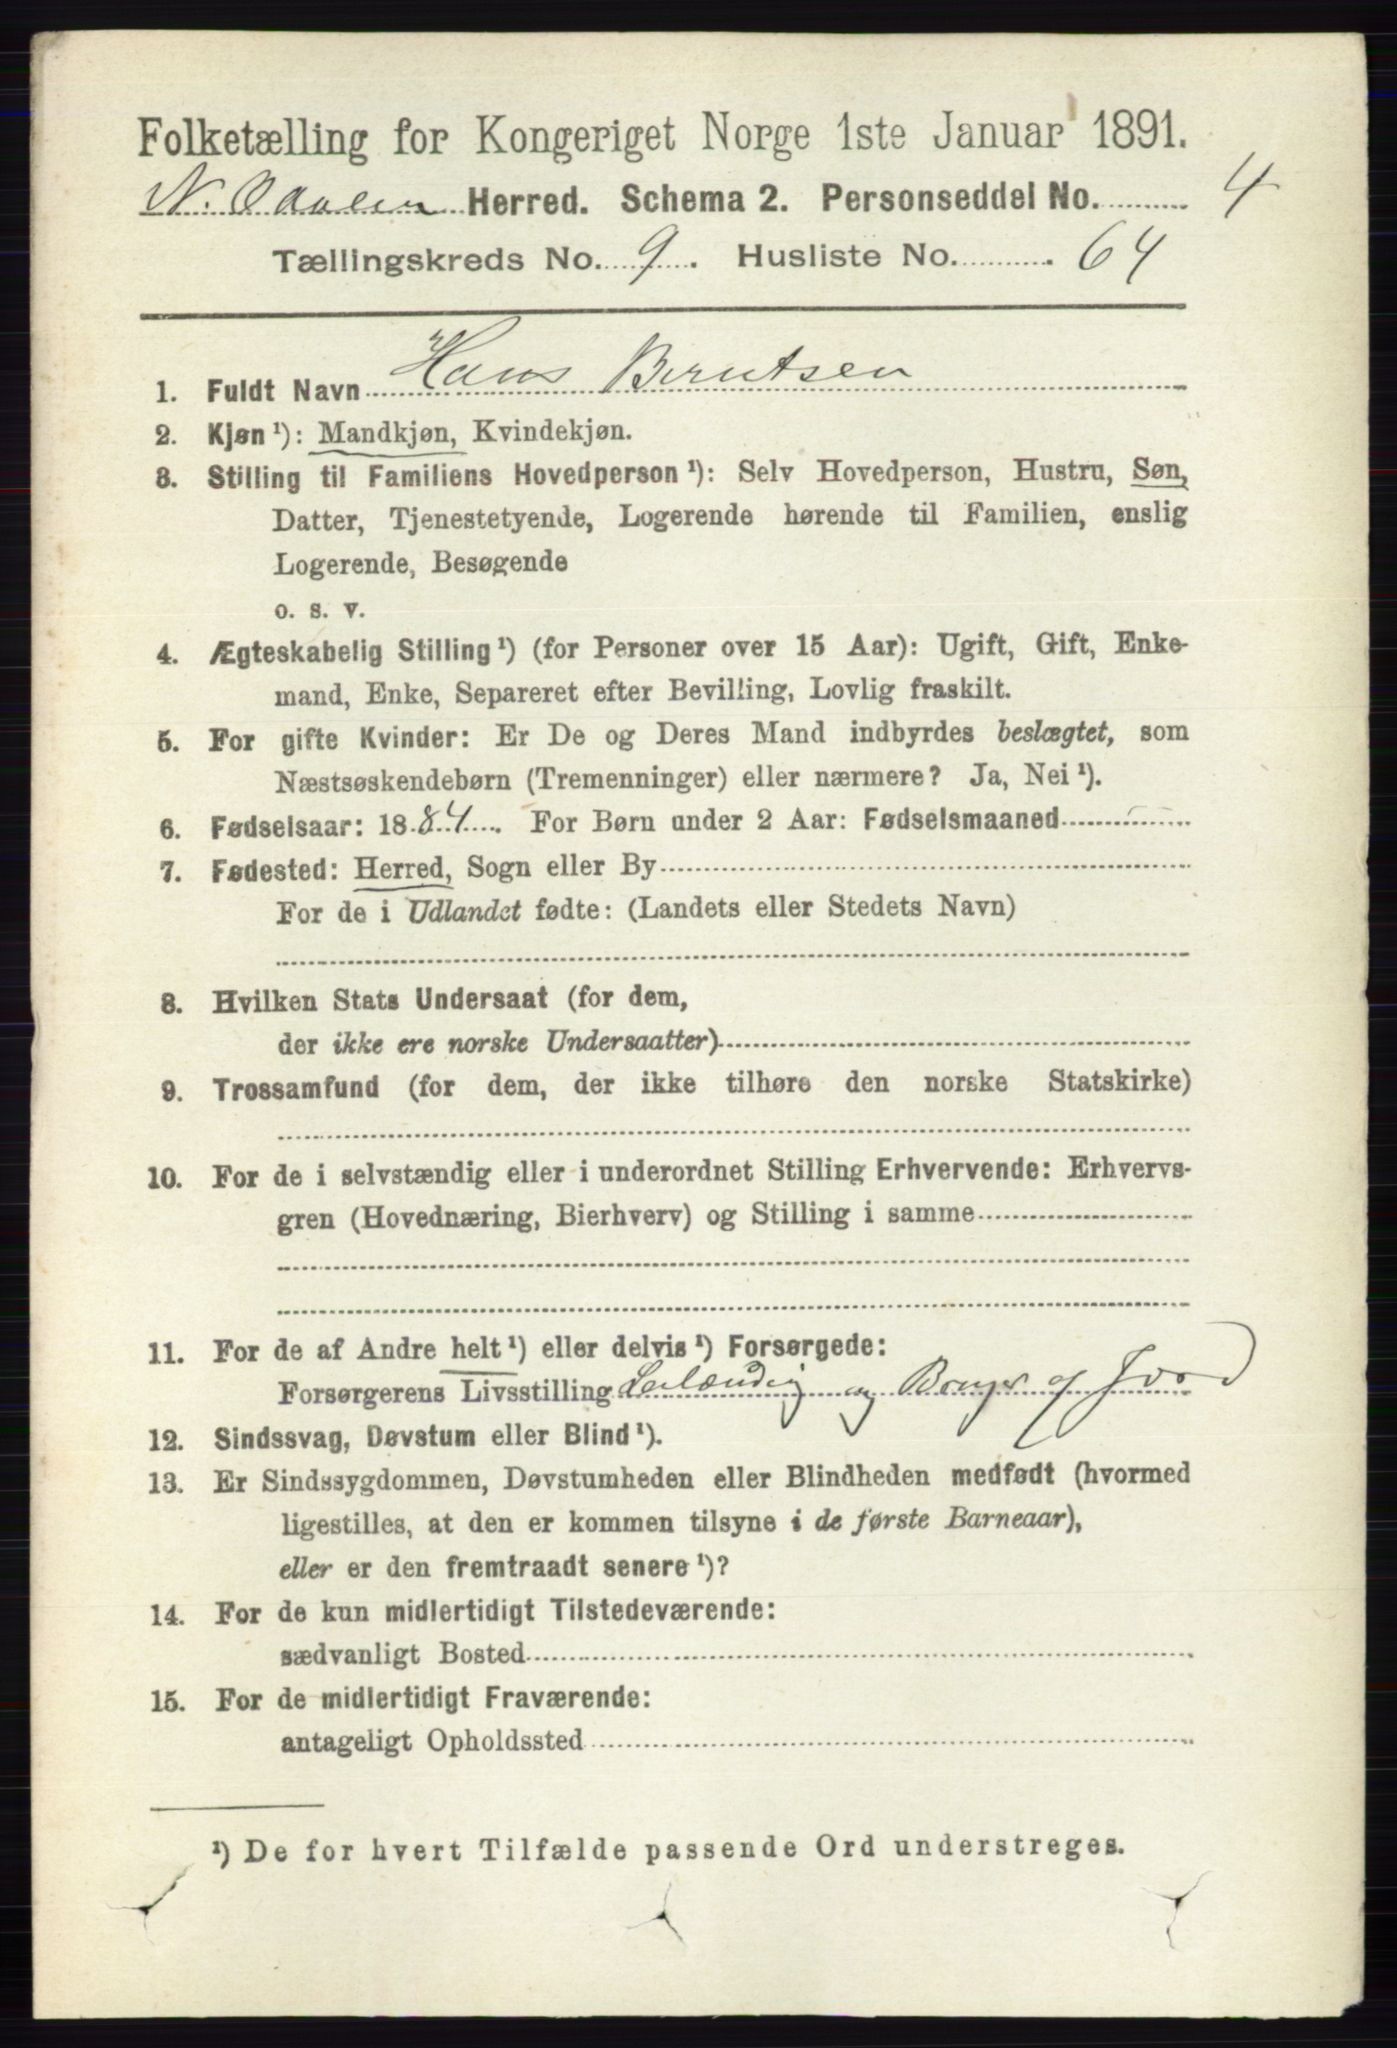 Folketælling for Kongeriget Norge 1ste Januar 1891.
N. Odalen Herred. Schema 2. Personseddel No. 4
Tællingskreds No. 9. Husliste No. 64
1. Fuldt Navn Hans Berntsen
2. Kjøn ¹): Mandkjøn, Kvindekjøn.
3. Stilling til Familiens Hovedperson ¹): Selv Hovedperson, Hustru, Søn,
Datter, Tjenestetyende, Logerende hørende til Familien, enslig
Logerende, Besøgende
o. s. v.
4. Ægteskabelig Stilling ¹) (for Personer over 15 Aar): Ugift, Gift, Enke-
mand, Enke, Separeret efter Bevilling, Lovlig fraskilt.
5. For gifte Kvinder: Er De og Deres Mand indbyrdes beslægtet, som
Næstsøskendebørn (Tremenninger) eller nærmere? Ja, Nei ¹).
6. Fødselsaar: 1884. For Børn under 2 Aar: Fødselsmaaned
7. Fødested: Herred, Sogn eller By
For de i Udlandet fødte: (Landets eller Stedets Navn)
8. Hvilken Stats Undersaat (for dem,
der ikke ere norske Undersaatter)
9. Trossamfund (for dem, der ikke tilhøre den norske Statskirke)
10. For de i selvstændig eller i underordnet Stilling Erhvervende: Erhvervs-
gren (Hovednæring, Bierhverv) og Stilling i samme
11. For de af Andre helt ¹) eller delvis ¹) Forsørgede:
Forsørgerens Livsstilling Leilænding og Bruger af Jord
12. Sindssvag, Døvstum eller Blind ¹).
13. Er Sindssygdommen, Døvstumheden eller Blindheden medfødt (hvormed
ligestilles, at den er kommen tilsyne i de første Barneaar),
eller er den fremtraadt senere ¹)?
14. For de kun midlertidigt Tilstedeværende:
sædvanligt Bosted
15. For de midlertidigt Fraværende:
antageligt Opholdssted
¹) De for hvert Tilfælde passende Ord understreges.